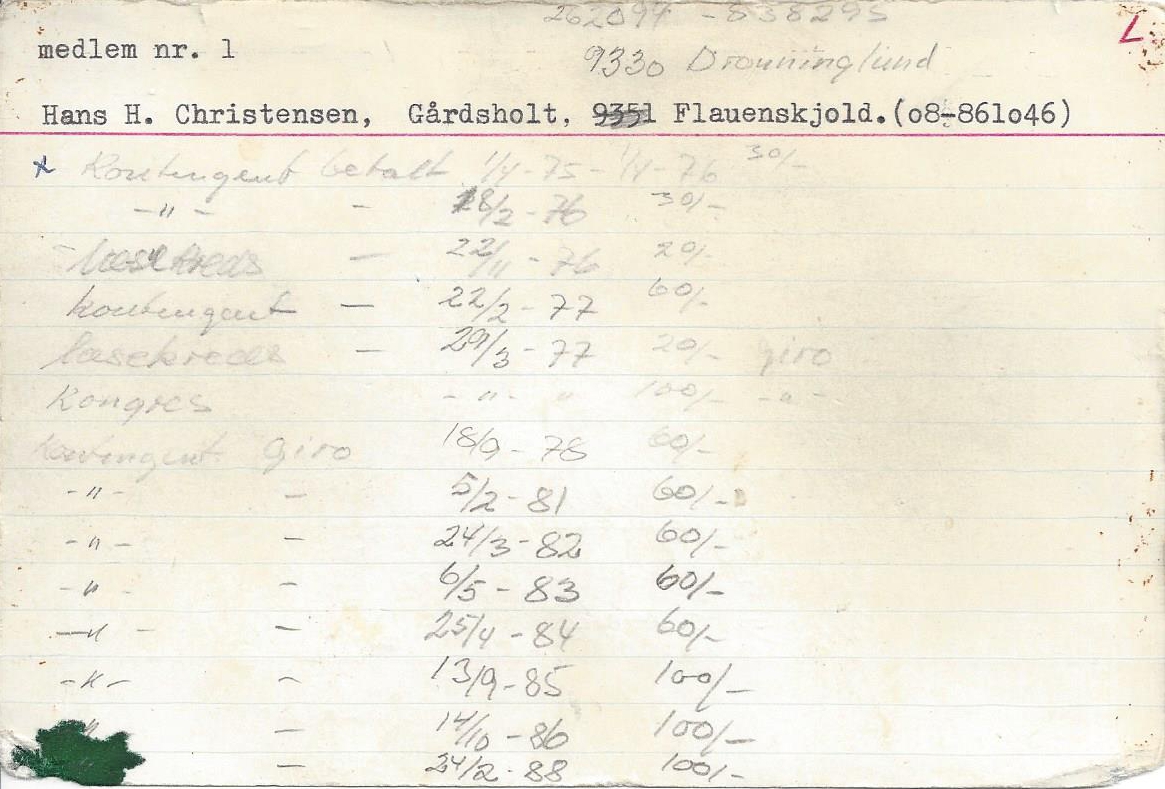 262094 - 838295
L
medlem nr. 1
9330 Dronninglund
Hans H. Christensen, Gårdsholt, 9351 Flauenskjold.(o8-861o46)
x Kontingent betalt 1/4-75 - 1/4-76 30/-
-"- - 28/2-76 30/-
- læsekreds - 22/11-76 20/-
kontingent - 22/2-77 60/-
læsekreds - 29/3-77 20/- giro
Kongres -"- " 100/- -"-
kontingent giro 18/9-78 60/-
-"- - 5/2-81 60/-
-"- - 24/3-82 60/-
-"- - 6/5-83 60/-
-"- - 25/4-84 60/-
-"- - 13/9-85 100/-
" - 14/10-86 100/-
- 24/2-88 100/-